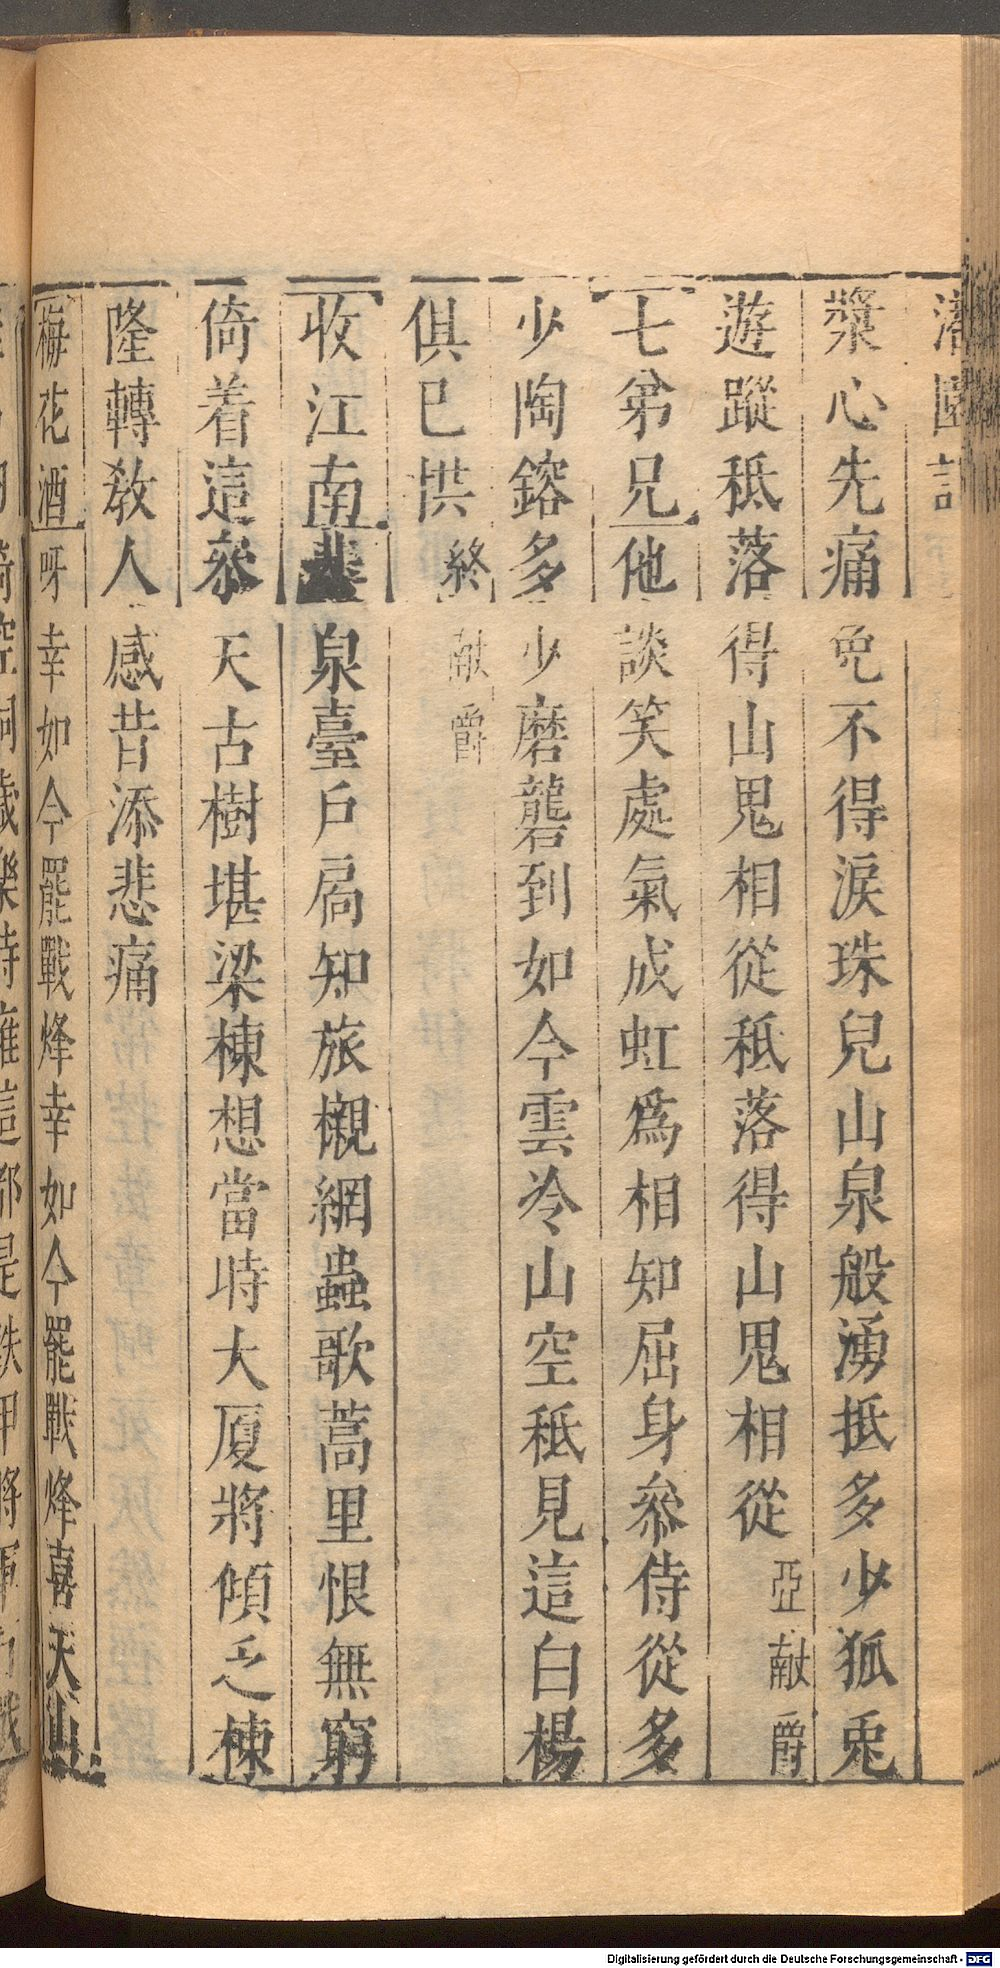 漿心先痛免不得淚珠兒山泉般湧抵多少狐兎
遊蹤秪落得山鬼相從秪落得山鬼相從亞献爵
七弟兄他談笑處氣成虹爲相知屈身叅侍從多
少陶鎔多少磨礱到如今雲冷山空秪見這白楊
俱已拱終献爵
收江南泉臺戶扃知旅櫬網蟲歌蒿里恨無窮
倚着這叅天古樹堪梁棟想當時大厦將傾乏棟
隆轉敎人感昔添悲痛
梅花酒呀幸如今罷戰烽幸如今罷戰烽喜天山
Digitalisierung gefördert durch die Deutsche Forschungsgemeinschaft - DFG